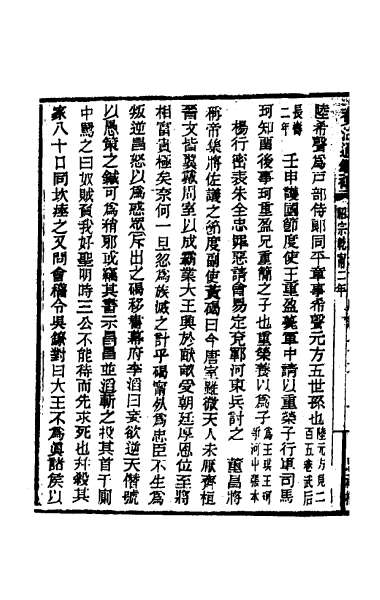 陸希聲爲戶部侍郎同平章事希聲元方五世孫也陸元方見二百五卷武后
長壽二年 壬申護國節度使王重盈薨軍中請以重榮子行軍司馬
珂知留後事珂重盈兄重簡之子也重榮養以爲子爲王珙王珂爭河中張本
楊行密表朱全忠罪惡請會易定兗鄆河東兵討之 董昌將
稱帝集將佐議之節度副使黃碣曰今唐室雖微天人未厭齊桓
晉文皆翼戴周室以成霸業大王興於畎畝受朝廷厚恩位至將
相富貴極矣柰何一旦忽爲族滅之計乎碣甯死爲忠臣不生爲
叛逆昌怒以爲惑眾斬出之碣移書幕府李滔曰妄欲逆天僭號
以愚策之鍼可爲稍邪或竊其書示昌昌並滔斬之投其首于廁
中罵之曰奴賊負我好聖明時三公不能待而先求死也幷殺其
家八十口同坎瘞之又問會稽令吳鐐對曰大王不爲眞諸侯以
資治通鑑
昭宗乾寧二年